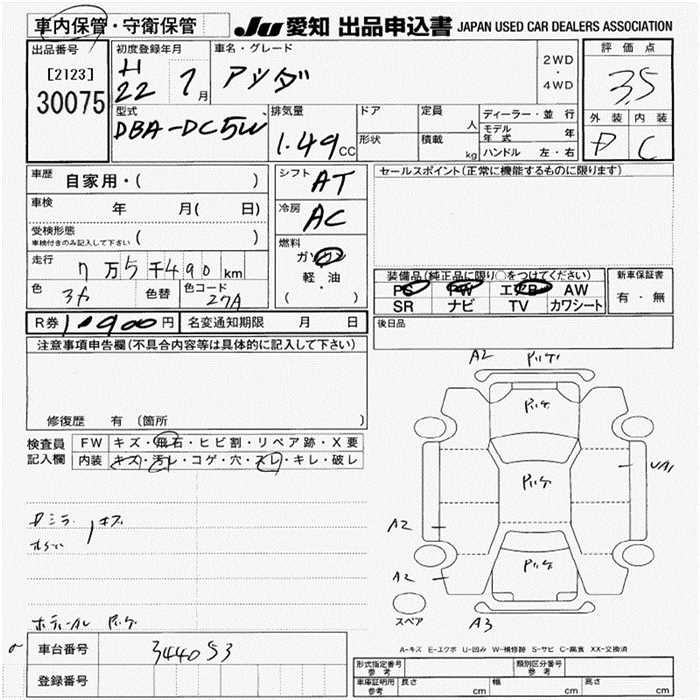 車内保管・守衛保管
JU 愛知 出品申込書 JAPAN USED CAR DEALERS ASSOCIATION
出品番号
[2123]
30075
初度登録年月
H
22 7月
車名・グレード
2WD
・
4WD
評価点
3.5
外装 内装
D C
型式
DBA-DC5W
排気量
1.49CC
ドア
形状
定員
人
積載
kg
ディーラー・並行
モデル年式 年
ハンドル 左・右
車歴
自家用・( )
車検
年 月( 日)
受検形態
車検付きのみ記入して下さい ( )
走行
7万5千490km
色
色替
色コード
27A
シフト AT
冷房 AC
燃料
ガソリン
軽・油
・
( )
セールスポイント(正常に機能するものに限ります)
装備品(純正品に限り○をつけてください)
PS PW エアB AW
SR ナビ TV カワシート
新車保証書
有・無
R券 円
名変通知期限 月 日
後日品
注意事項申告欄(不具合内容等は具体的に記入して下さい)
修復歴 有 (箇所 )
検査員
記入欄
FW キズ・飛石・ヒビ割・リペア跡・X要
内装 キズ・汚レ・コゲ・穴・スレ・キレ・破レ
A2
A2
A2
A3
スペア
A-キズ E-エクボ U-凹み W-補修跡 S-サビ C-腐食 XX-交換済
車台番号
344053
登録番号
形式指定番号
参考
類別区分番号
参考
車庫証明用
参考
長さ cm
幅 cm
高さ cm